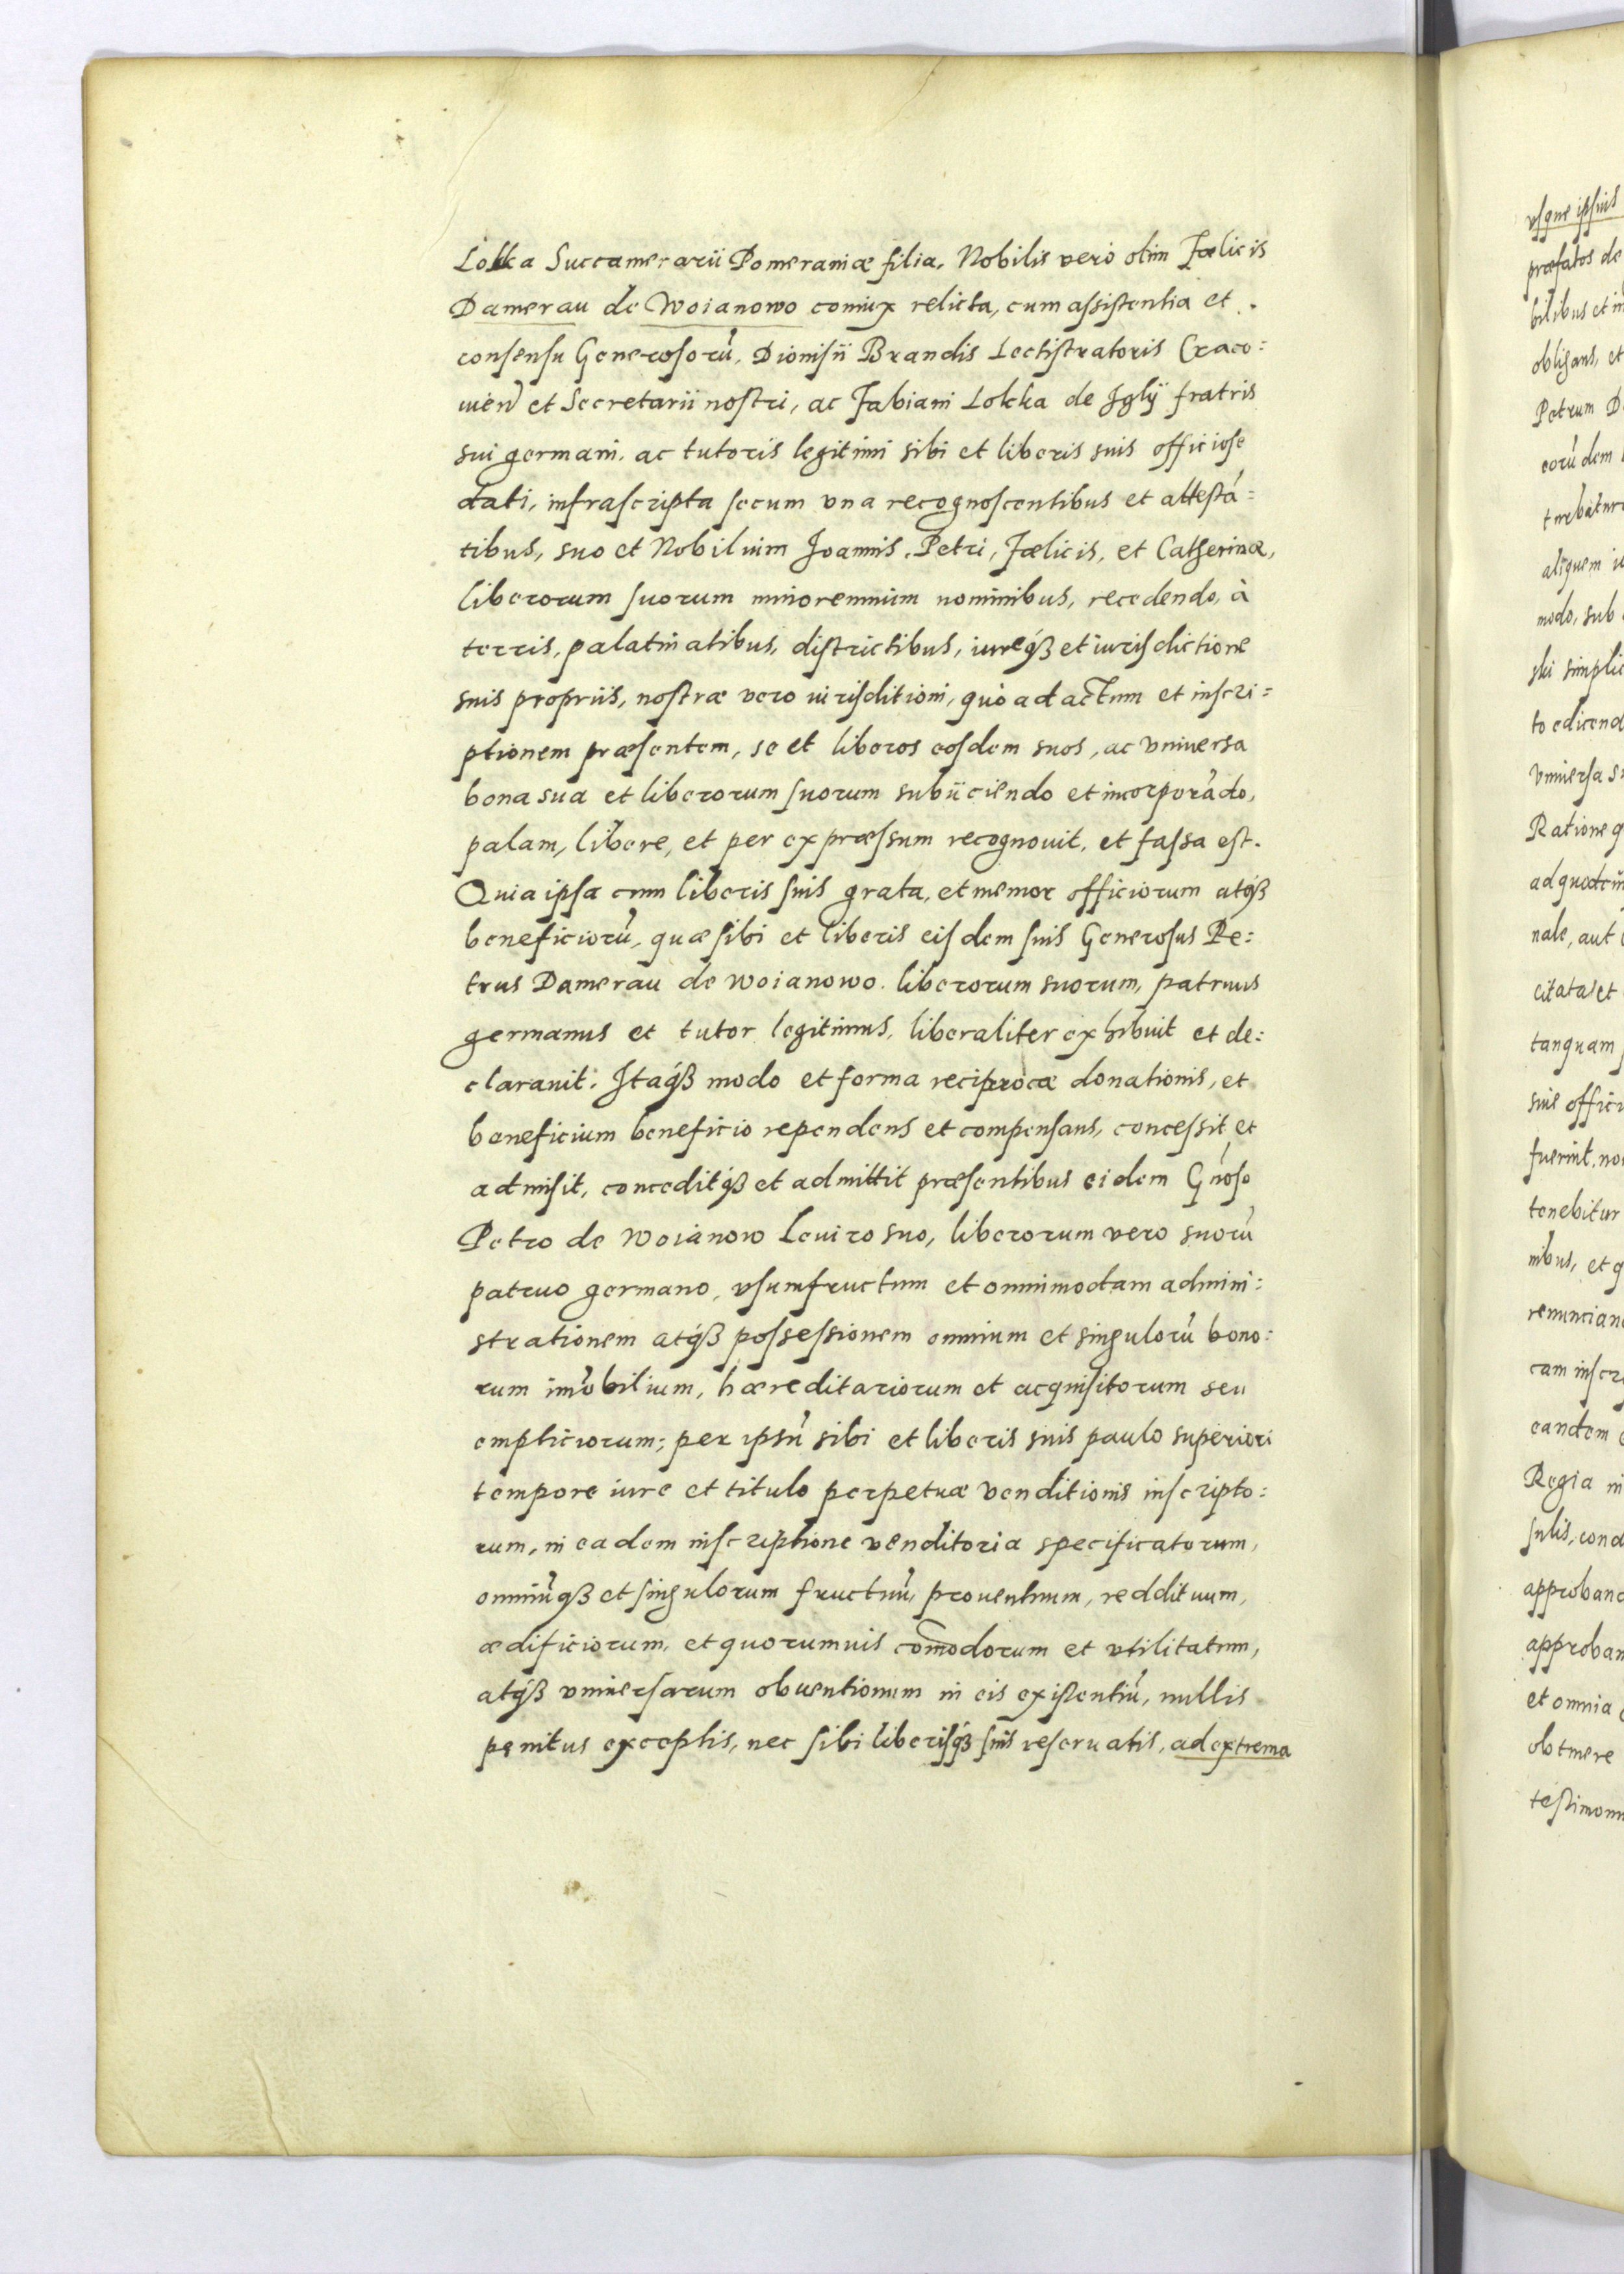 Lokka Succamerarii Pomeraniæ filia, Nobilis vero olim Fœlicis
Damerau de Woianowo coniux relicta, cum assistentia et
consensu Generosorũ, Dionisii Brandis Lectistratoris Craco=
uien̄ et Secretarii nostri, ac Fabiani Lokka de Iglÿ fratris
sui germani, ac tutoris legitimi sibi et liberis suis officiose
dati, infrascripta secum vna recognoscentibus et attestá=
tibus, suo et Nobilium Joannis, Petri, Fœlicis, et Catherinæ,
liberorum suorum minorennium nominibus, recedendo, à
terris, palatinatibus, districtibus, iureq́ꝫ et iurisdictione
suis propriis, nostræ vero iurisditioni, quò ad actum et inscri=
ptionem præsentem, se et liberos eosdem suos, ac vniuersa
bona sua et liberorum suorum subiiciendo et incorporãdo,
palam, libere, et per expræssum recognouit, et fassa est.
Quia ipsa cum liberis suis grata, et memor officiorum atq́ꝫ
beneficiorũ, quæ sibi et liberis eisdem suis Generosus Pe=
trus Damerau de Woianowo liberorum suorum, patruus
germanus et tutor legitimus, liberaliter exhibuit et de=
clarauit. Itaq́ꝫ modo et forma reciprocæ donationis, et
beneficium beneficio rependens et compensans, concessit et
admisit, conceditq́ꝫ et admittit præsentibus eidem Gn̄oso
Petro de Woianow Leuiro suo, liberorum vero suorũ
patruo germano, vsumfructum et omnimodam admini=
strationem atq́ꝫ possessionem omnium et singulorũ bono=
rum im̃obilium, hæreditariorum et acquisitorum seu
empticiorum; per ipsũ sibi et liberis suis paulo superiori
tempore iure et titulo perpetuæ venditionis inscripto=
rum, in eadem inscriptione venditoria specificatorum,
omniũqꝫ et singulorum fructuũ, prouentuum, reddituum,
ædificiorum, et quorumuis com̃odorum et vtilitatum,
atq́ꝫ vniuersarum obuentionum in eis existentiũ, nullis
penitus exceptis, nec sibi liberisq́ꝫ suis reseruatis, ad extrema
vsque ipsius
præfatos de
bilibus et in
obligans, et
Petrum D
eorũdem
aliquem
modo, sub
ski simplic
to edicend
Vniuersa s
Ratione q
nale, aut
citata et
tanquam
siue offici
fuerint, no
tenebitur
nibus, et q
renuncian
cam inscr
eandem
Regia
sulis, cond
approband
approban
et omnia
obtinere
testimoni